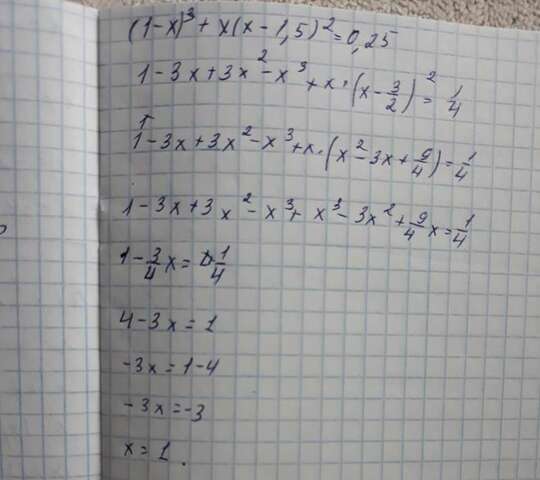 (1-x)³ + x(x-1,5)² = 0,25
1-3x+3x²-x³+x·(x-3/2)² = 1/4
1-3x+3x²-x³+x·(x²-3x+9/4) = 1/4
1-3x+3x²-x³+x³-3x²+9/4x = 1/4
1-3/4x = 1/4
4-3x = 1
-3x = 1-4
-3x = -3
x = 1.